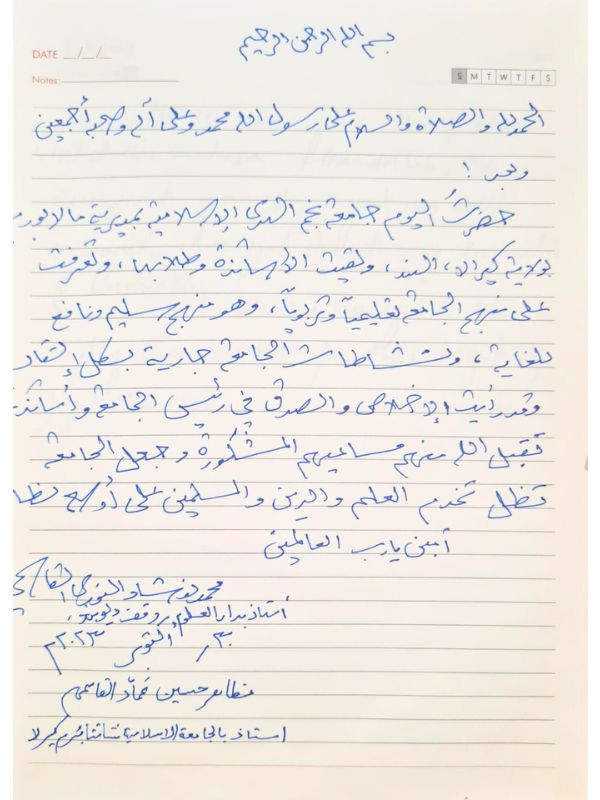 بسم الله الرحمن الرحيم
DATE __/__/__
Notes:
S M T W T F S
الحمد لله والصلاة والسلام على رسول الله محمد وعلى آله وصحبه أجمعين
وبعد !
حضرت اليوم جامعة نجم الهدى الإسلامية بمديرية مالابورم
بولاية كيرالا، الهند، ولقيت الأساتذة وطلابها، وتعرفت
على منهج الجامعة تعليمياً وتربوياً، وهو منهج سليم ونافع
للغاية، ونشاطات الجامعة جارية بشكل
وقد رأيت الإخلاص والصدق في رئيس الجامعة وأساتذ
تقبل الله منهم مساعيهم المشكورة وجعل الجامعة
تظل تخدم العلم والدين والمسلمين على أوسع نطا
آمين يا رب العالمين
محمد
أستاذ بدار العلوم وقف ديوبند،
٣٠ / أكتوبر ٢٠٢٣م
مظاهر حسين عماد القاسمي
استاذ بالجامعة الاسلامية شانتابرم كيرلا